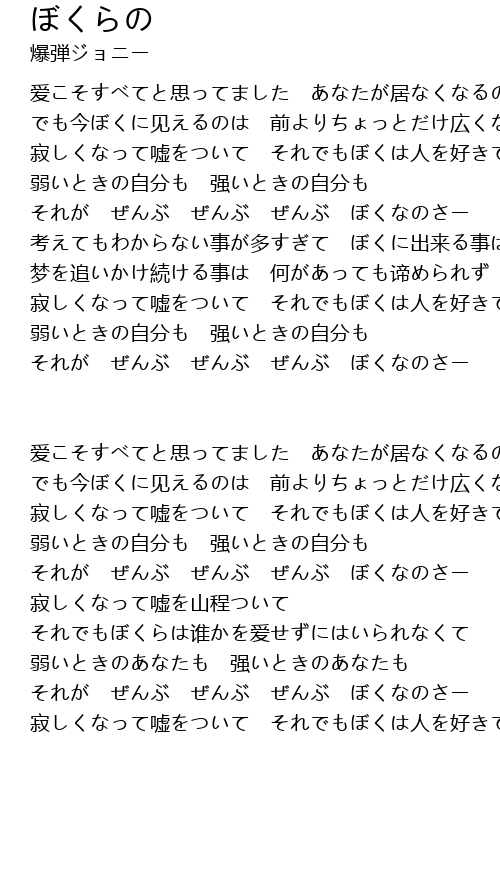 ぼくらの
爆弾ジョニー
爱こそすべてと思ってました　あなたが居なくなるの
でも今ぼくに见えるのは　前よりちょっとだけ広くな
寂しくなって嘘をついて　それでもぼくは人を好きで
弱いときの自分も　強いときの自分も
それが　ぜんぶ　ぜんぶ　ぜんぶ　ぼくなのさー
考えてもわからない事が多すぎて　ぼくに出来る事は
梦を追いかけ続ける事は　何があっても谛められず
寂しくなって嘘をついて　それでもぼくは人を好きで
弱いときの自分も　強いときの自分も
それが　ぜんぶ　ぜんぶ　ぜんぶ　ぼくなのさー
爱こそすべてと思ってました　あなたが居なくなるの
でも今ぼくに见えるのは　前よりちょっとだけ広くな
寂しくなって嘘をついて　それでもぼくは人を好きで
弱いときの自分も　強いときの自分も
それが　ぜんぶ　ぜんぶ　ぜんぶ　ぼくなのさー
寂しくなって嘘を山程ついて
それでもぼくらは谁かを爱せずにはいられなくて
弱いときのあなたも　強いときのあなたも
それが　ぜんぶ　ぜんぶ　ぜんぶ　ぼくなのさー
寂しくなって嘘をついて　それでもぼくは人を好きで